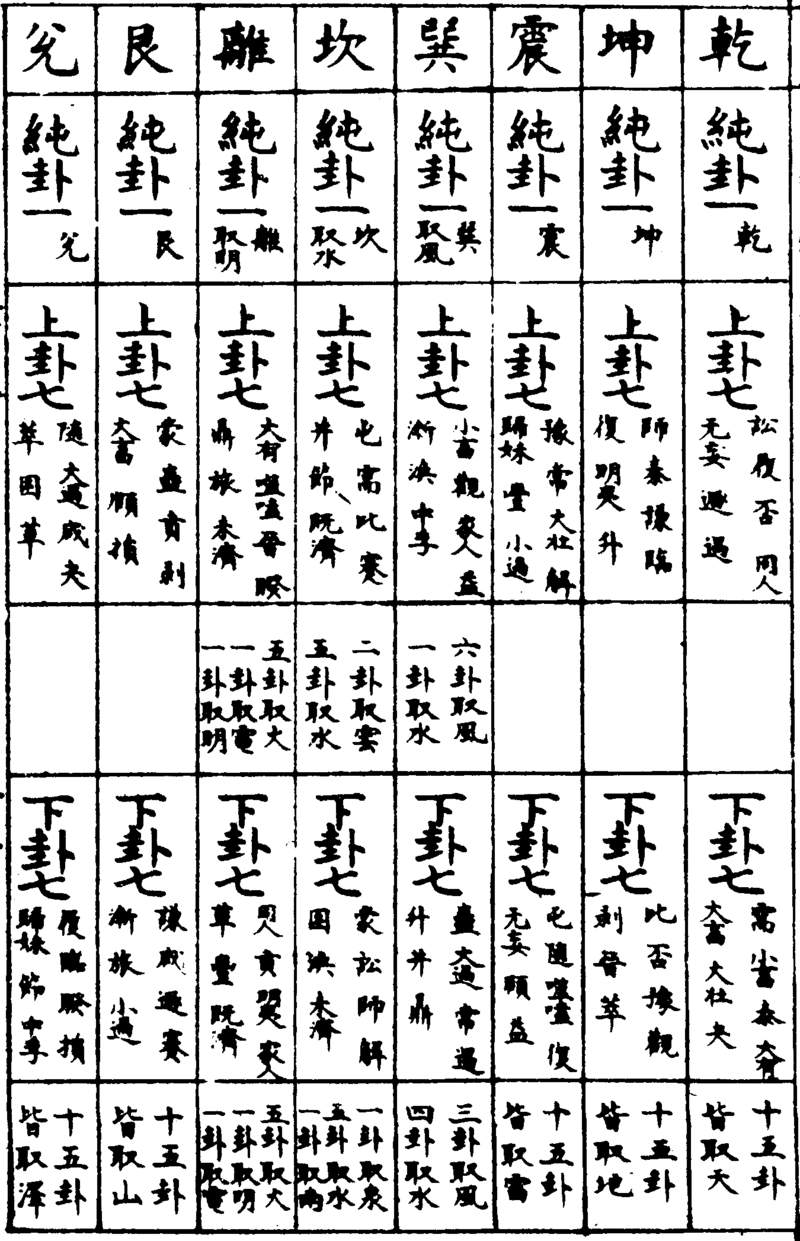 乾
純卦一
乾
上卦七
訟 履 否 同人
无妄 遯
下卦七
需 小畜 泰 大有
大畜 大壯 夬
十五卦
皆取天
坤
純卦一
坤
上卦七
師 泰 謙 臨
復 明夷 升
下卦七
比 否 豫 觀
剝 晉 萃
十五卦
皆取地
震
純卦一
震
上卦七
豫 常 大壯 解
歸妹 豐 小過
下卦七
屯 隨 噬嗑 復
无妄 頤 益
十五卦
皆取雷
巽
純卦一
巽
取風
上卦七
小畜 觀 家人 益
漸 渙 中孚
六卦取風
一卦取水
下卦七
蠱 大過 常
升 井 鼎
三卦取風
四卦取水
坎
純卦一
坎
取水
上卦七
屯 需 比 蹇
井 節 既濟
二卦取雲
五卦取水
下卦七
蒙 訟 師 解
困 渙 未濟
一卦取泉
五卦取水
一卦取雨
離
純卦一
離
取明
上卦七
大有 噬嗑 晉 睽
鼎 旅 未濟
五卦取火
一卦取電
一卦取明
下卦七
同人 賁 明夷 家人
革 豐 既濟
五卦取火
一卦取明
一卦取電
艮
純卦一
艮
上卦七
蒙 蠱 賁 剝
大畜 頤 損
下卦七
謙 咸 遯 蹇
漸 旅 小過
十五卦
皆取山
兌
純卦一
兌
上卦七
隨 大過 咸 夬
萃 困 革
下卦七
履 臨 睽 損
歸妹 節 中孚
十五卦
皆取澤